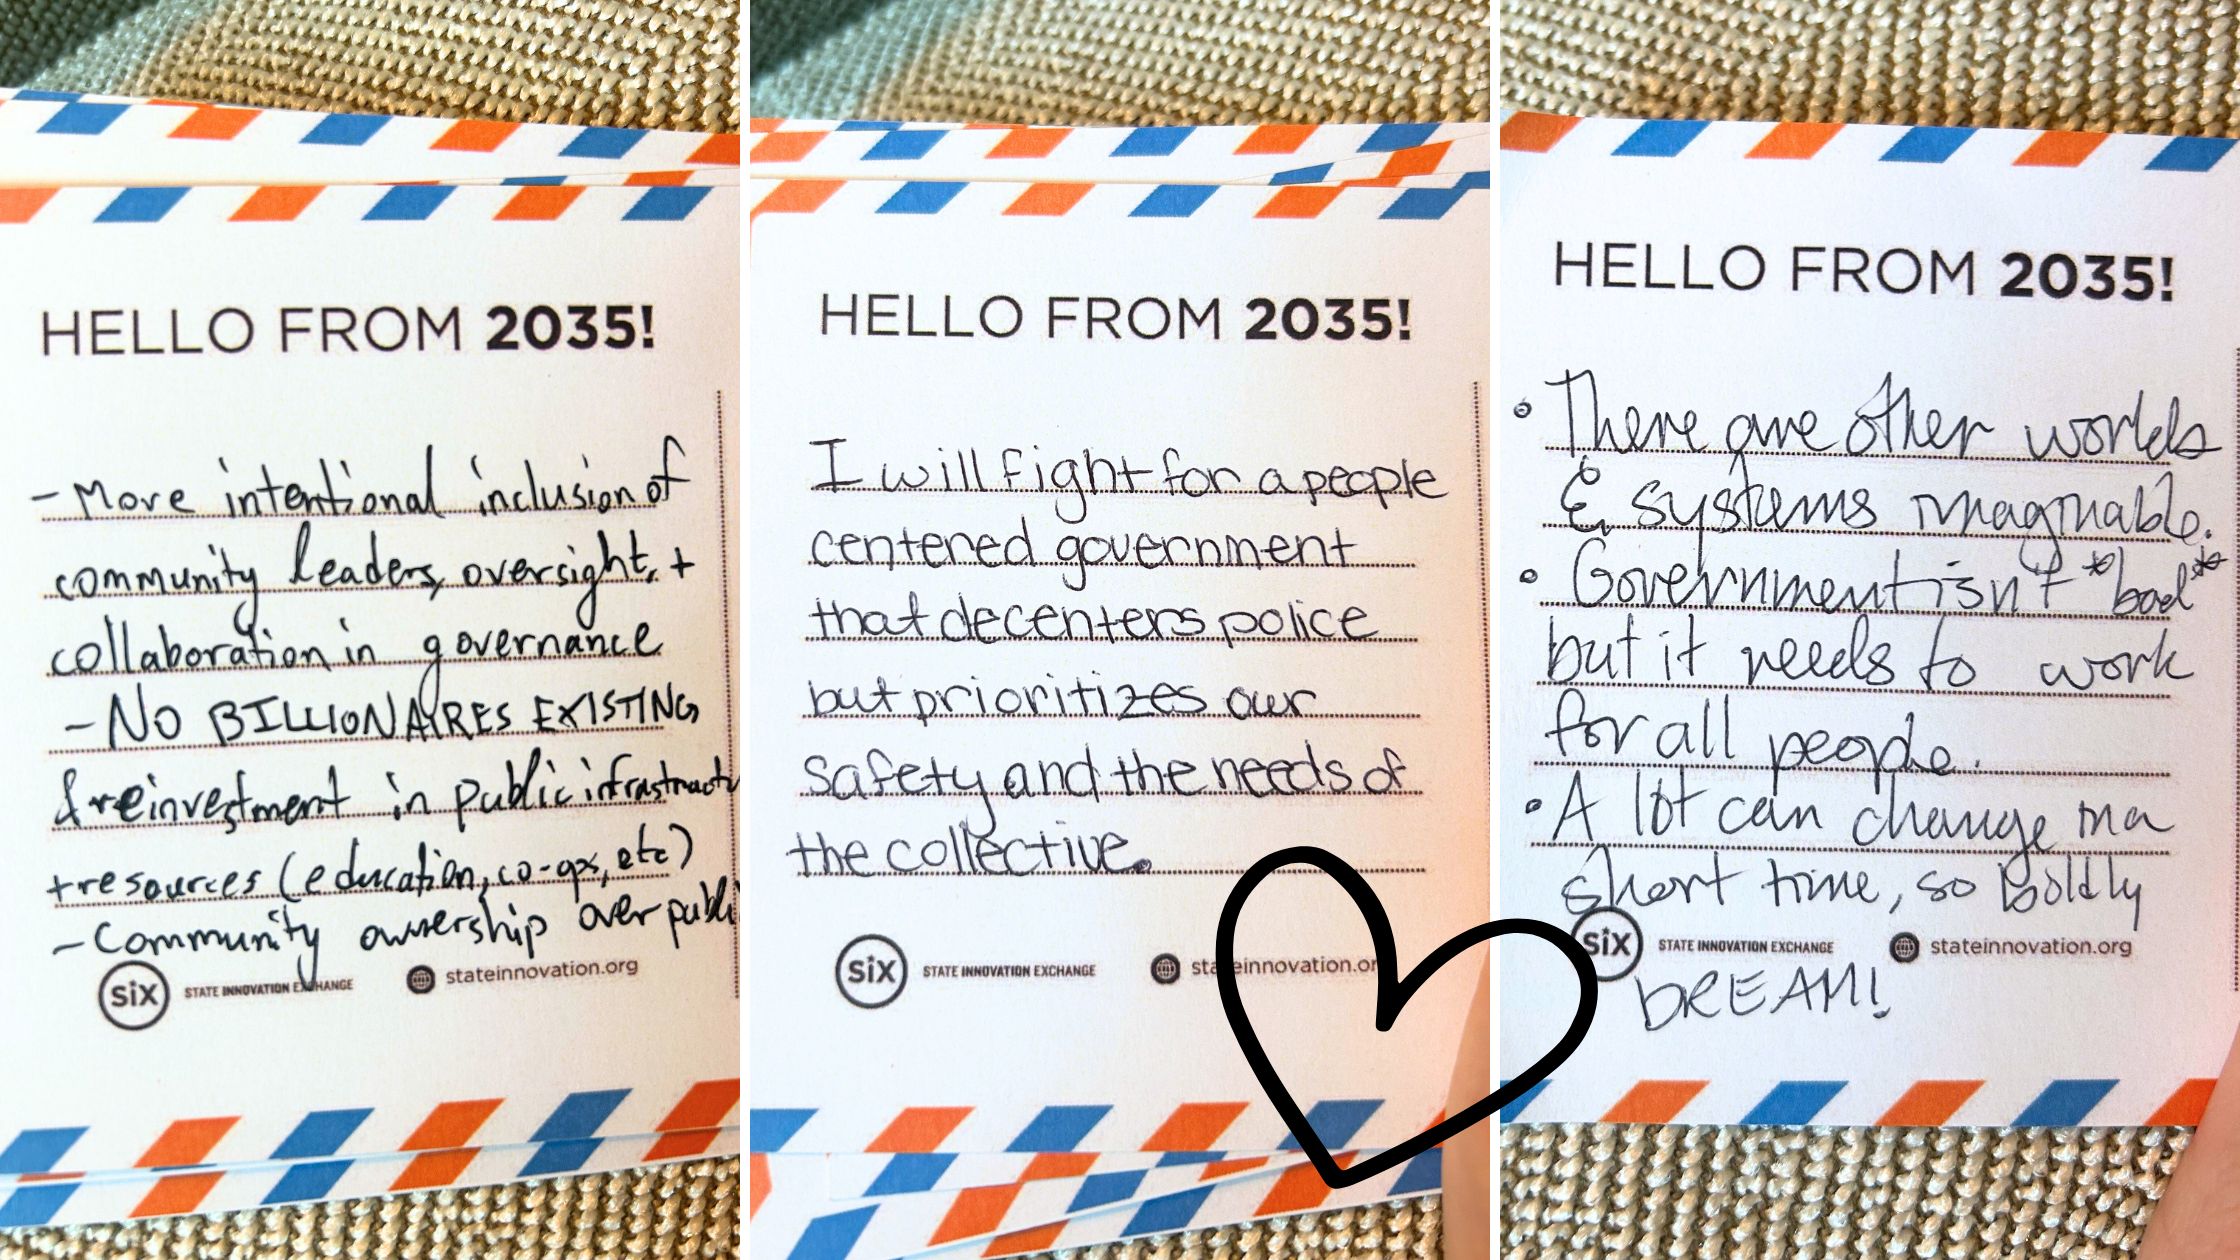 HELLO FROM 2035!
- More intentional inclusion of
community leaders, oversight, +
collaboration in governance
- NO BILLIONAIRES EXISTING
& reinvestment in public infrastructu
+ resources (education, co-ops, etc)
- Community ownership over publi
SiX STATE INNOVATION EXCHANGE stateinnovation.org
HELLO FROM 2035!
I will fight for a people
centered government
that decenters police
but prioritizes our
safety and the needs of
the collective.
SiX STATE INNOVATION EXCHANGE stateinnovation.or
HELLO FROM 2035!
• There are other worlds
& systems imaginable.
• Government isn't *bad*
but it needs to work
for all people.
• A lot can change in a
short time, so boldly
SiX STATE INNOVATION EXCHANGE stateinnovation.org
DREAM!